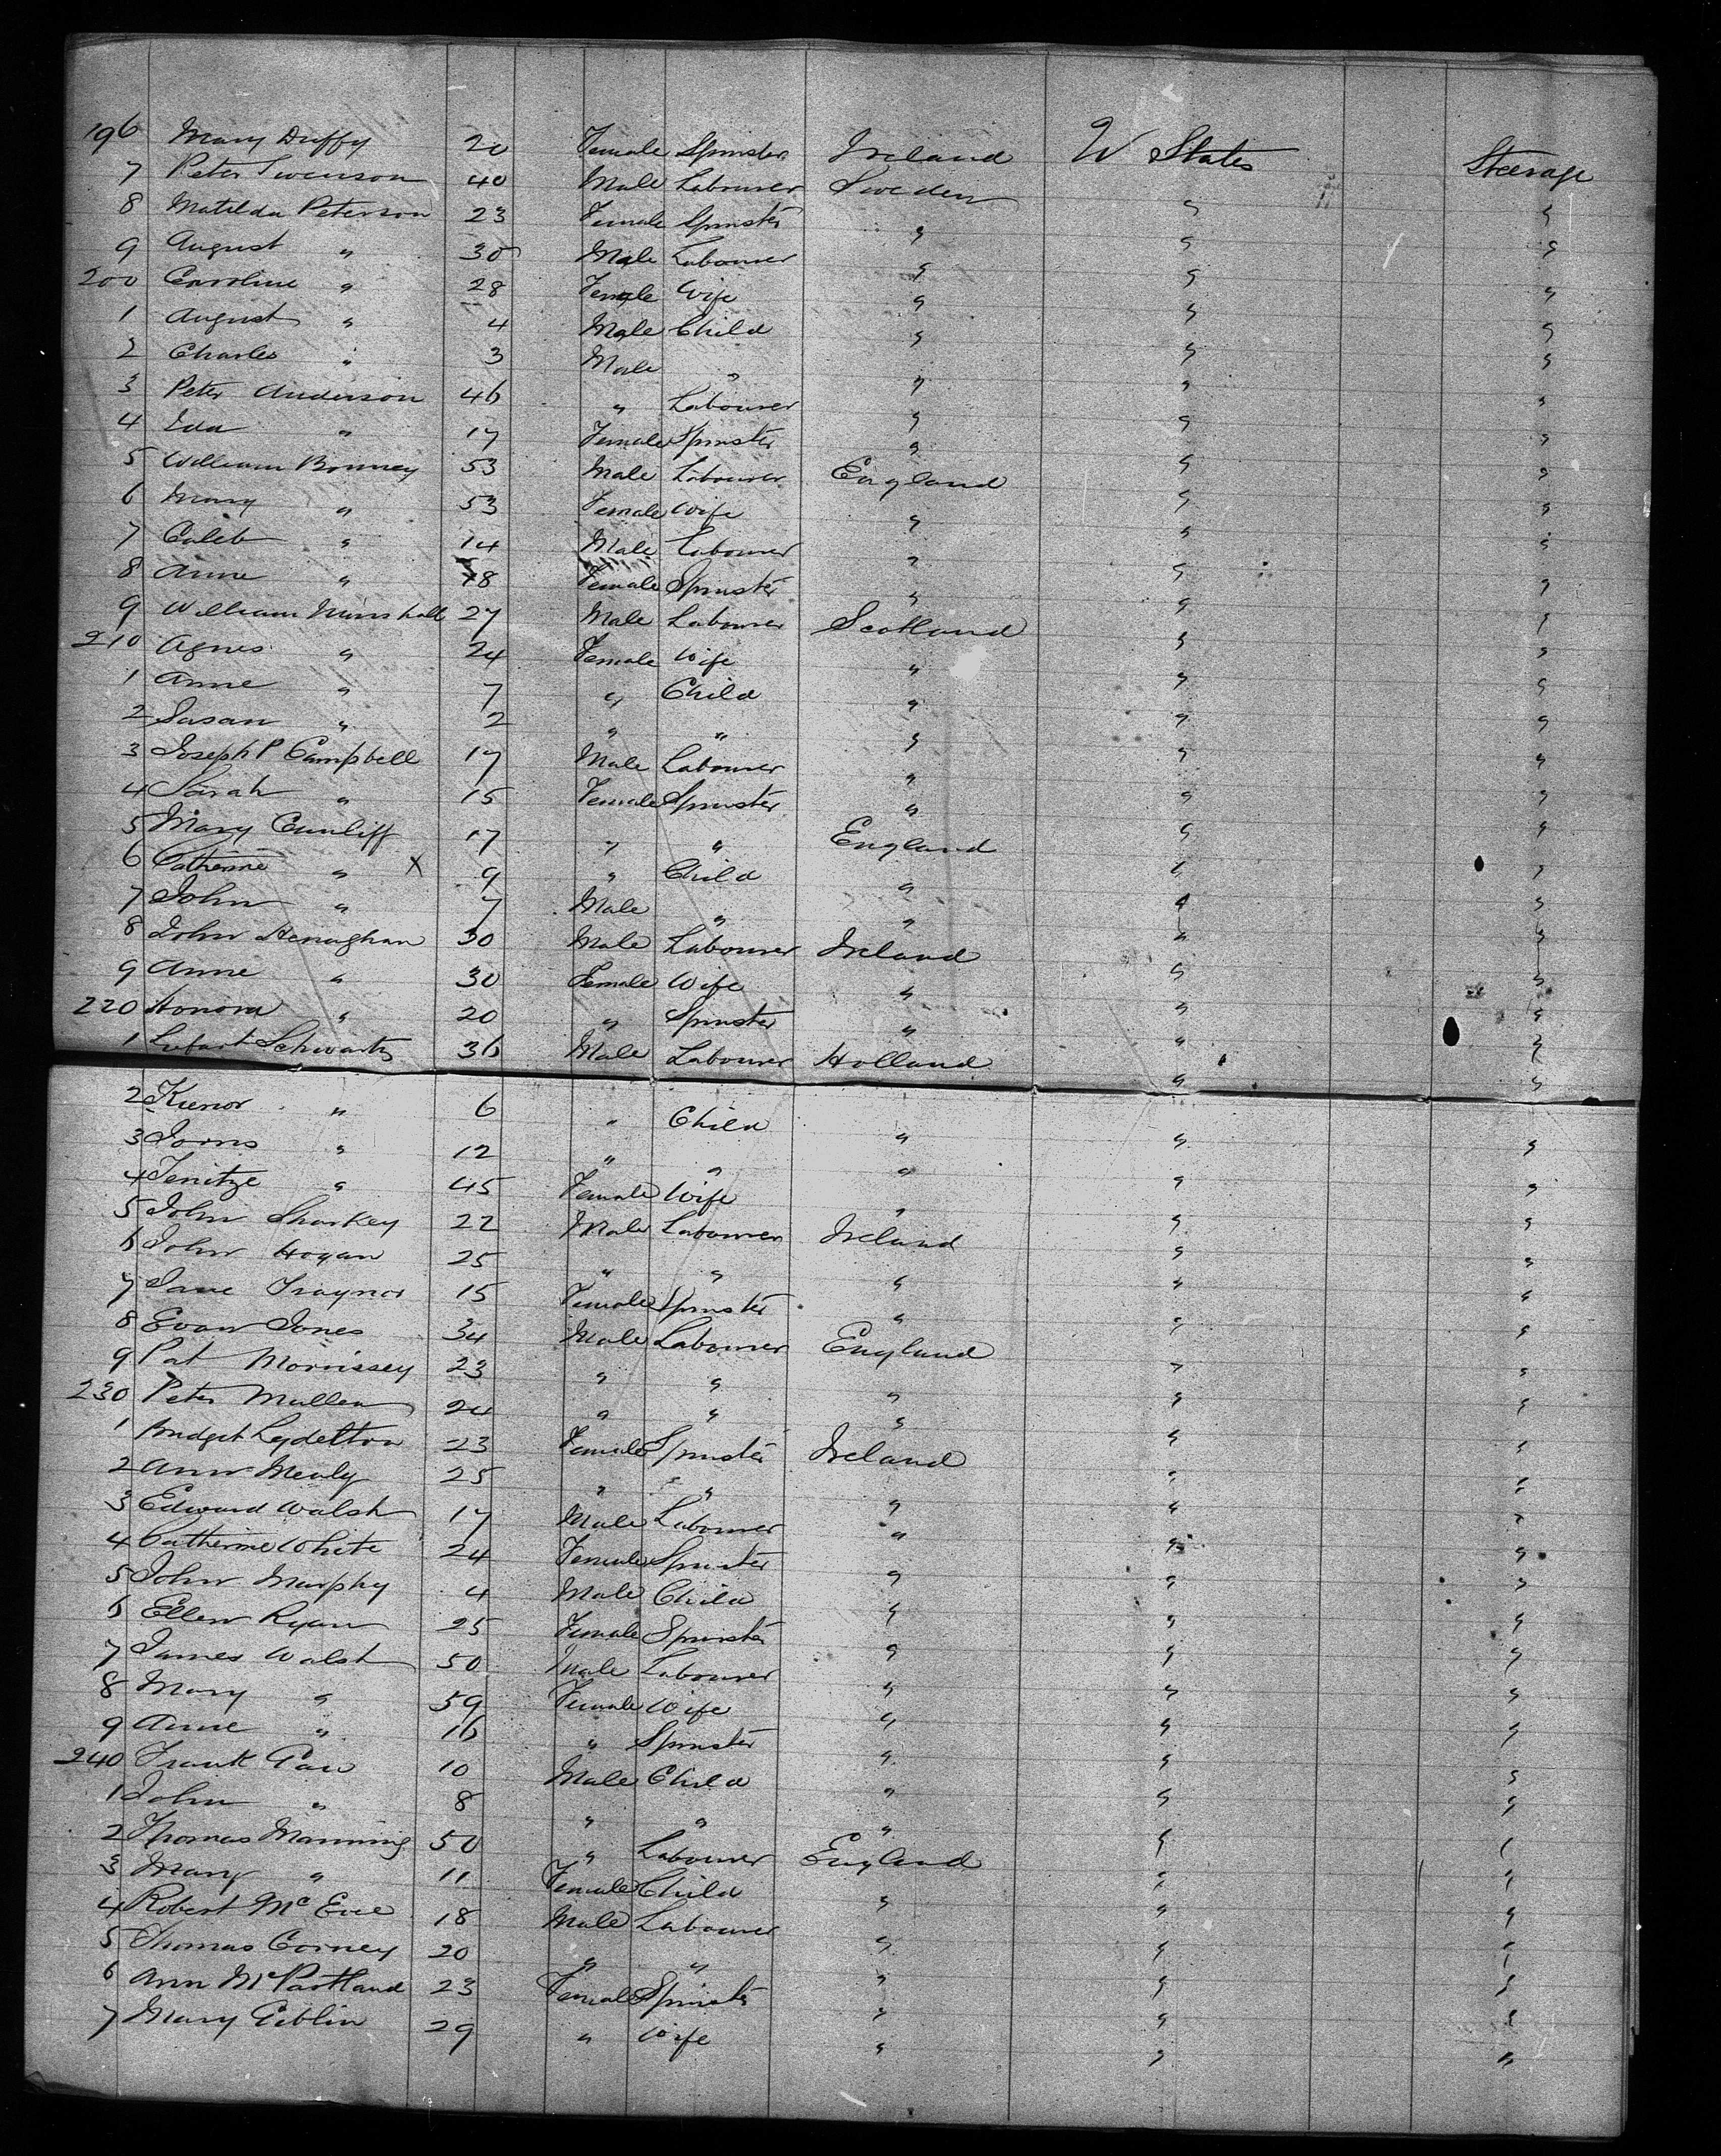 196 Mary Duffy 20 Female Spinster Ireland U States Steerage
7 Peter Swenson 40 Male Labourer Sweden " "
8 Matilda Peterson 23 Female Spinster " " "
9 August " 30 Male Labourer " " "
200 Caroline " 28 Female Wife " " "
1 August " 4 Male Child " " "
2 Charles " 3 Male " " " "
3 Peter Anderson 46 " Labourer " " "
4 Eda " 17 Female Spinster " " "
5 William Bonney 53 Male Labourer England " "
6 Mary " 53 Female Wife " " "
7 Caleb " 14 Male Labourer " " "
8 Anne " 18 Female Spinster " " "
9 William Minshall 27 Male Labourer Scotland " "
210 Agnes " 24 Female Wife " " "
1 Anne " 7 " Child " " "
2 Susan " 2 " " " " "
3 Joseph P Campbell 17 Male Labourer " " "
4 Sarah " 15 Female Spinster " " "
5 Mary Cunliff 17 " " England " "
6 Catherine " X 9 " Child " " "
7 John " 7 Male " " " "
8 John Henaghan 30 Male Labourer Ireland " "
9 Anne " 30 Female Wife " " "
220 Honora " 20 " Spinster " " "
1 Schwartz 36 Male Labourer Holland " "
2 " 6 " Child " " "
3 " 12 " " " " "
4 " 45 Female Wife " " "
5 John Sharkey 22 Male Labourer Ireland " "
6 John Hogan 25 " " " " "
7 Jane Traynor 15 Female Spinster " " "
8 Evan Jones 34 Male Labourer England " "
9 Pat Morrissey 23 " " " " "
230 Peter Mullen 24 " " " " "
1 Bridget Lydetton 23 Female Spinster Ireland " "
2 Ann Mealy 25 " " " " "
3 Edward Walsh 17 Male Labourer " " "
4 Catherine White 24 Female Spinster " " "
5 John Murphy 4 Male Child " " "
6 Ellen Ryan 25 Female Spinster " " "
7 James Walsh 50 Male Labourer " " "
8 Mary " 59 Female Wife " " "
9 Anne " 16 " Spinster " " "
240 Frank 10 Male Child " " "
1 John " 8 " " " " "
2 Thomas Manning 50 " Labourer England " "
3 Mary " 11 Female Child " " "
4 Robert McEvee 18 Male Labourer " " "
5 Thomas Corney 20 " " " " "
6 Ann McPartland 23 Female Spinster " " "
7 Mary Giblin 29 " Wife " " "